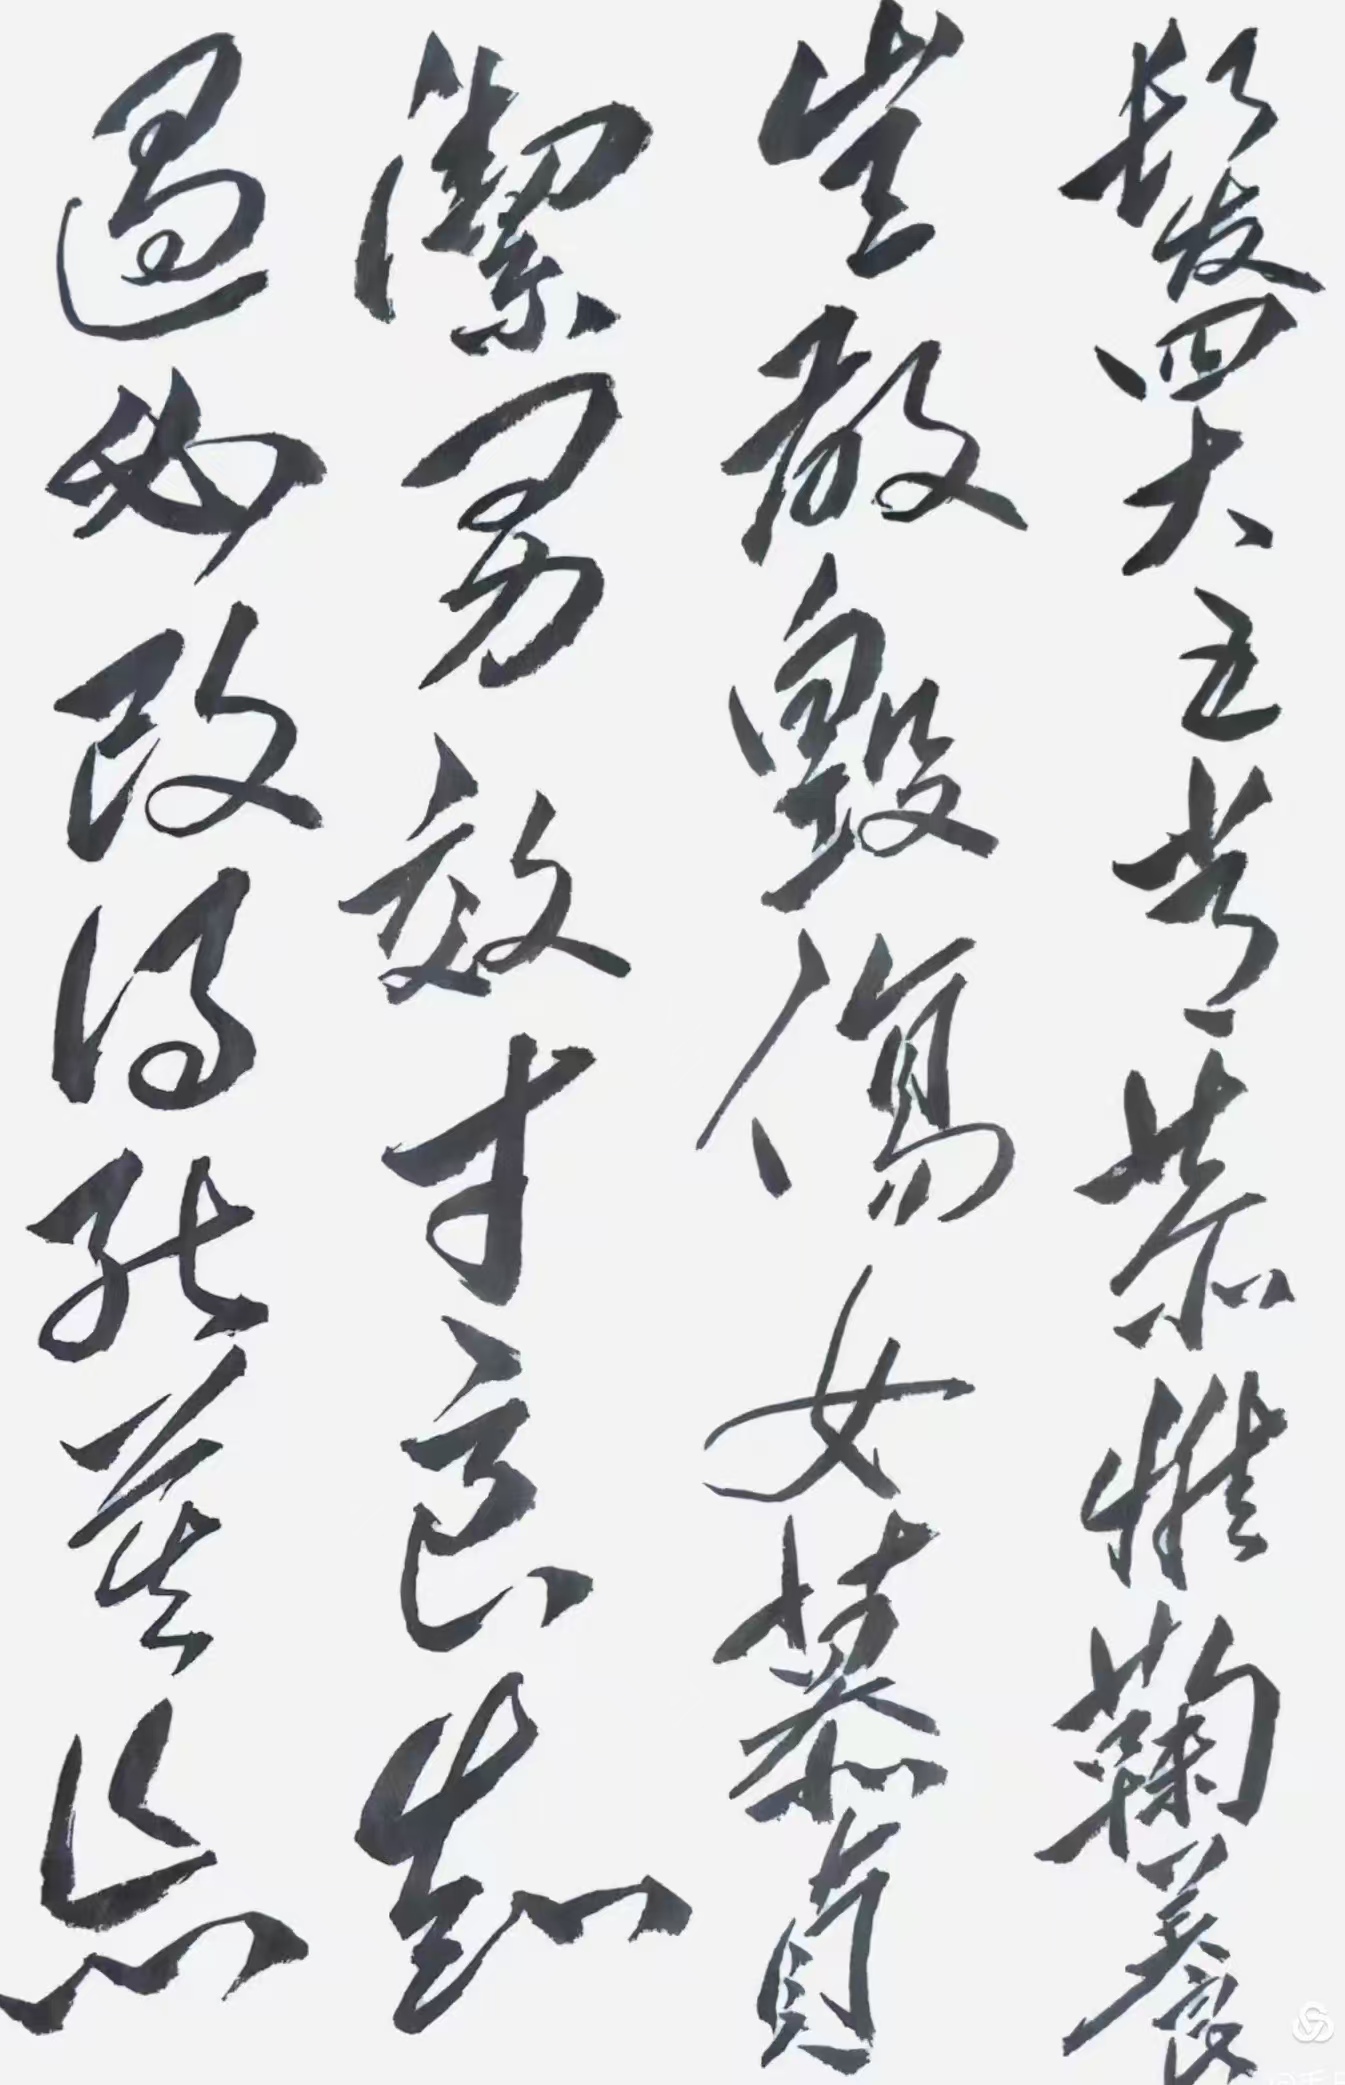 髮四大五常恭惟鞠養
豈敢毀傷女慕貞
潔男效才良知
過必改得能莫忘